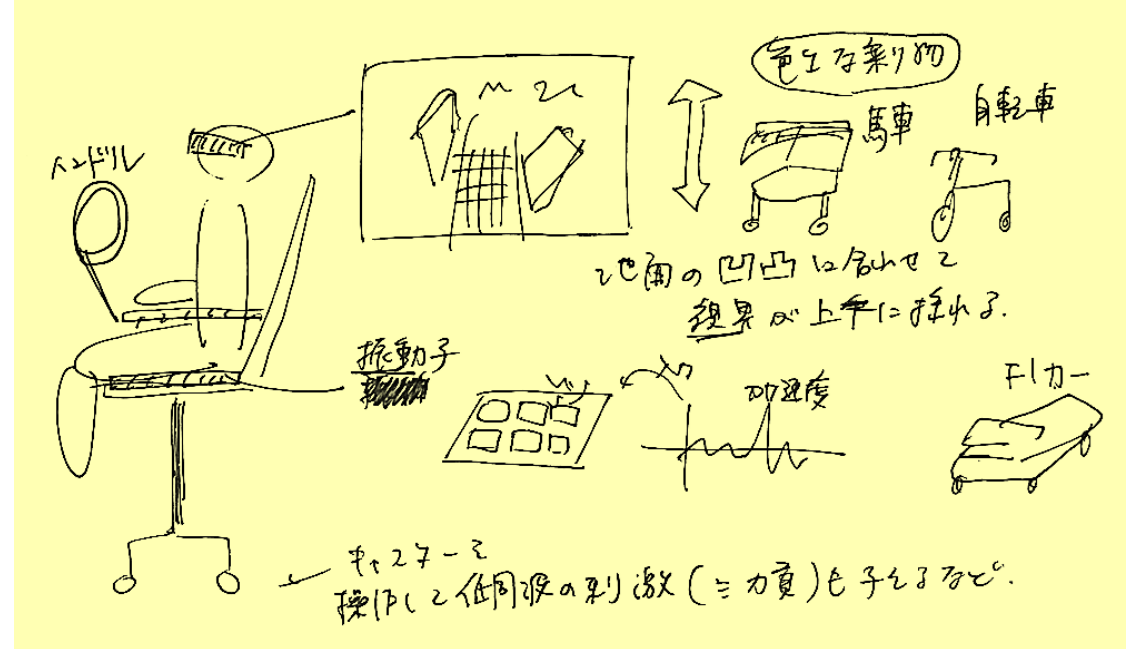 色々な乗り物
馬車
自転車
ハンドル
地面の凹凸に合わせて
視界が上下に揺れる.
振動子
加速度
F1カー
キャスターを
操作して低周波の刺激(≒力覚)も与えるなど.